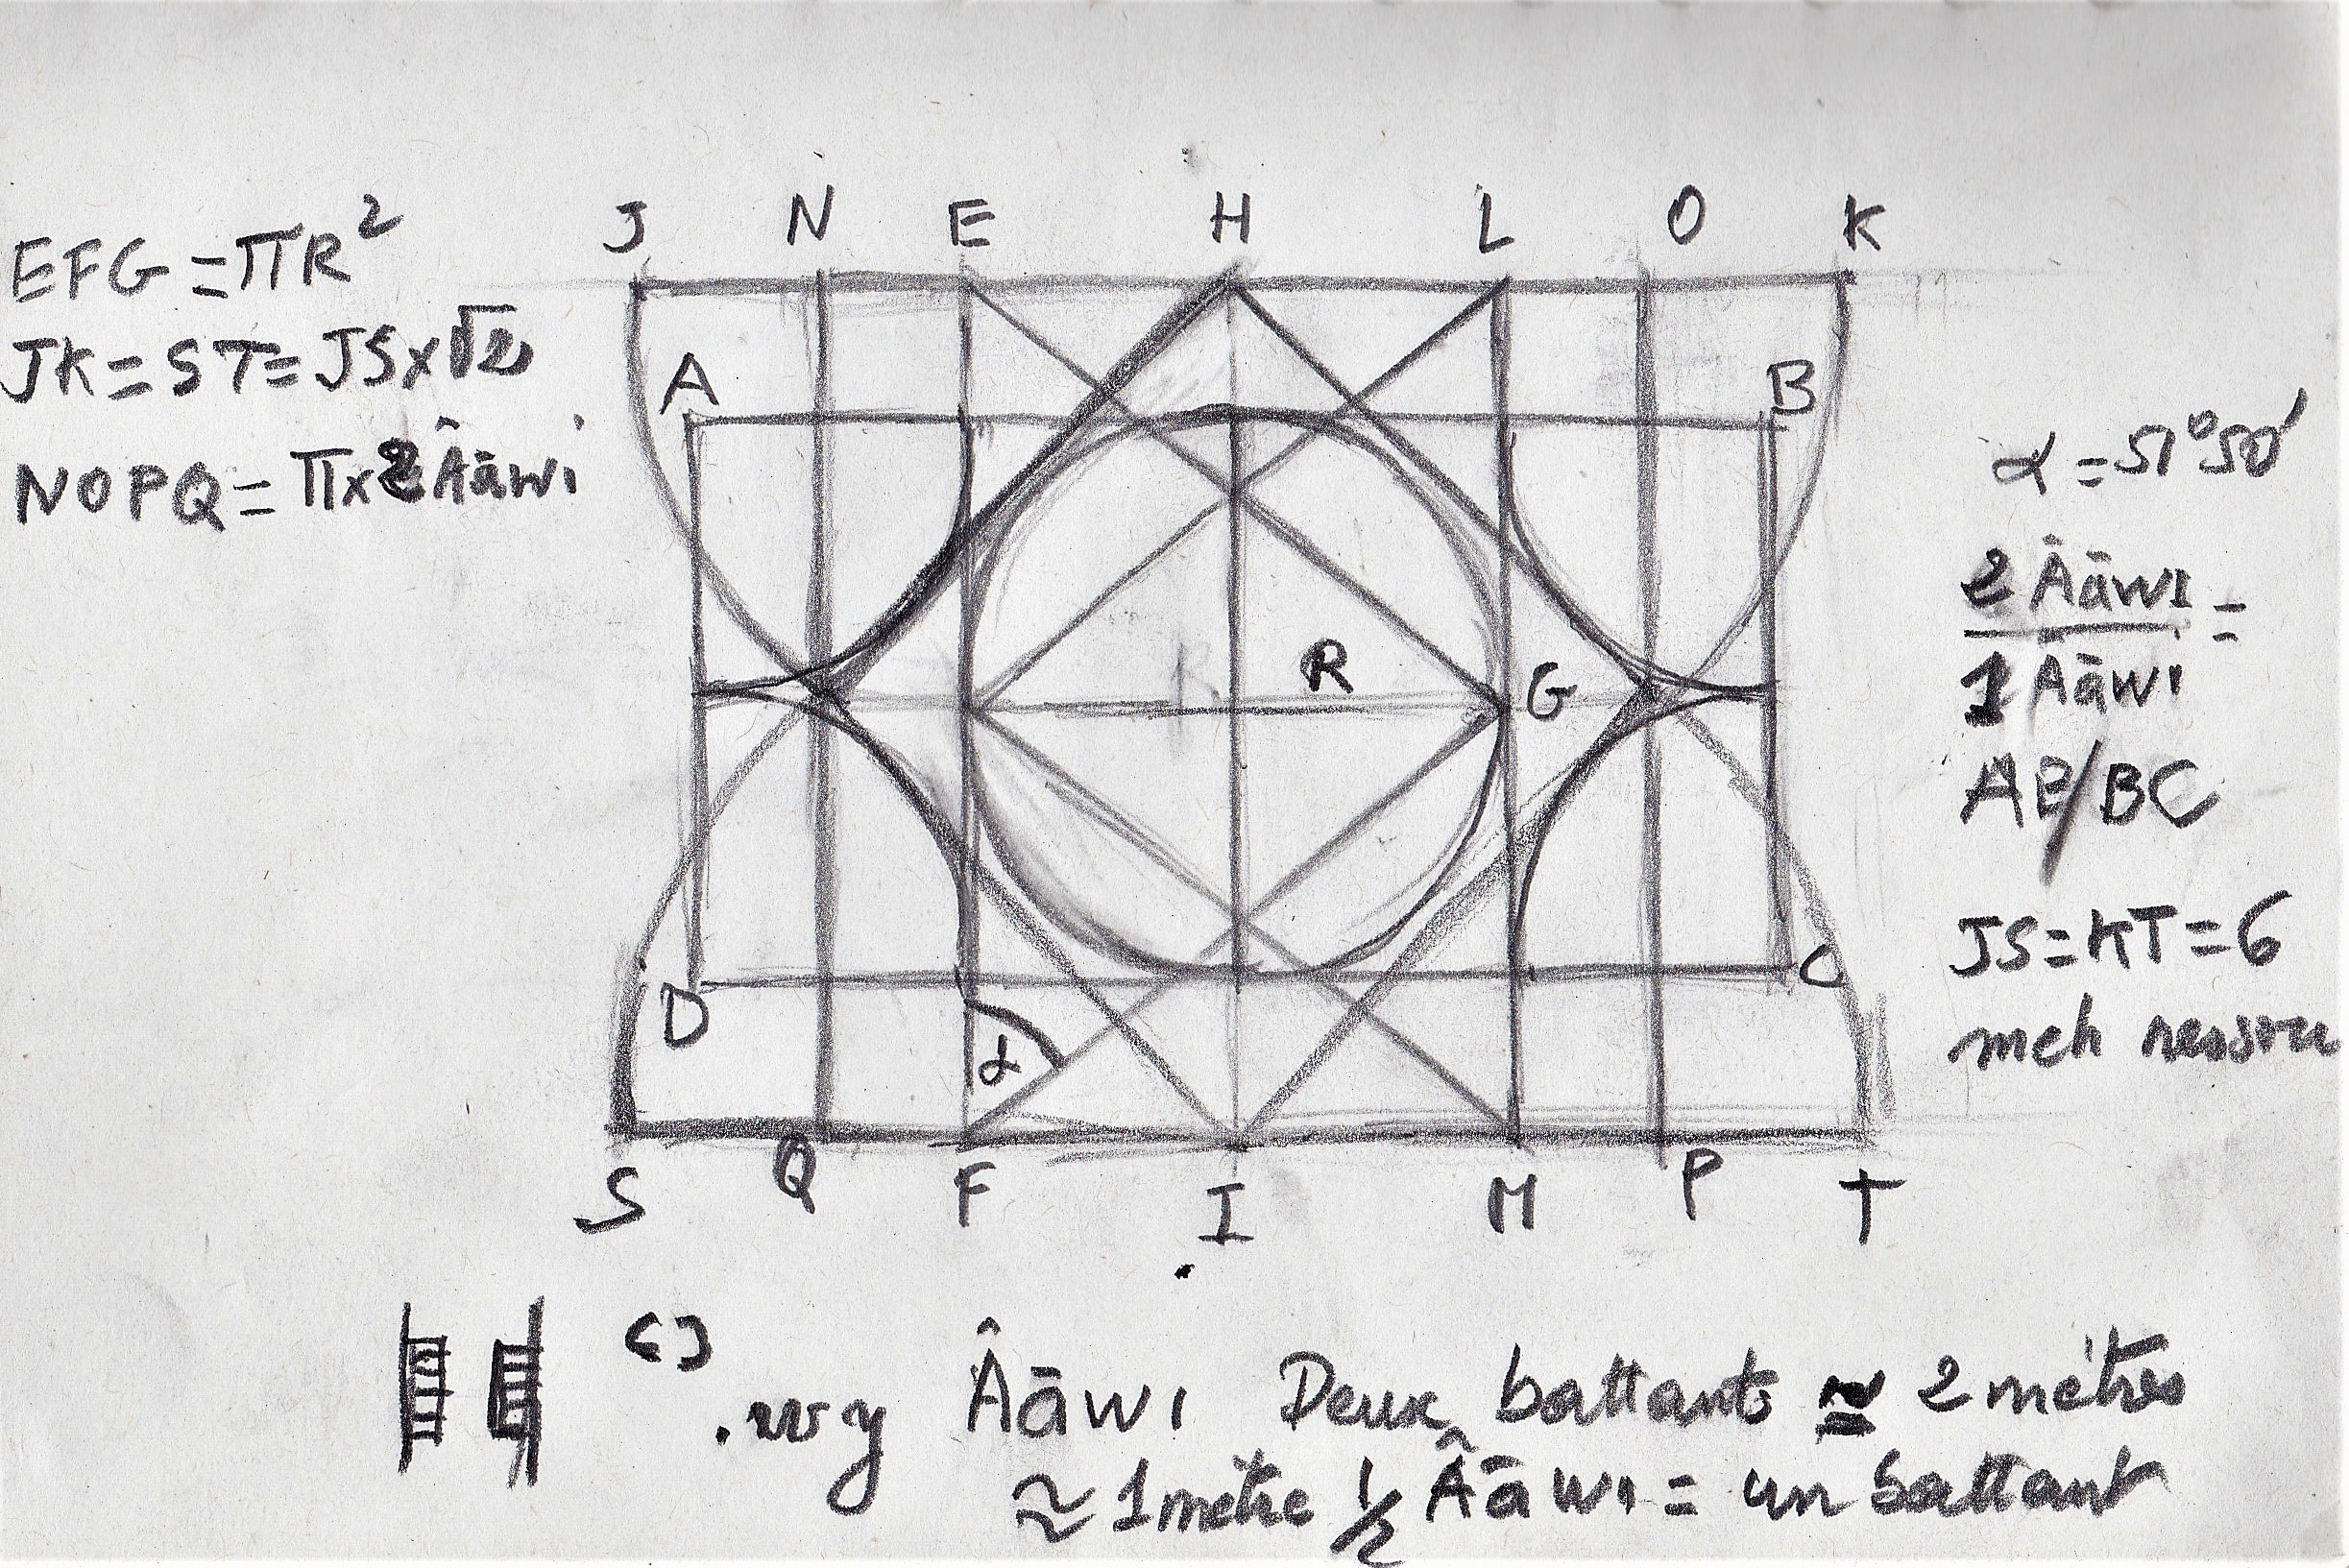 J N E H L O K
EFG = πR²
JK = ST = JS x √2
NOPQ = π x 2 Âāwi
A B
R G
D C
α
S Q F I M P T
α = 51°50'
2 Âāwi =
1 Âāwi
AB/BC
JS = KT = 6
meh
.wy Âāwi Deux battants ≃ 2 mètres
≈ 1 mètre 1/2 Âāwi = un battant